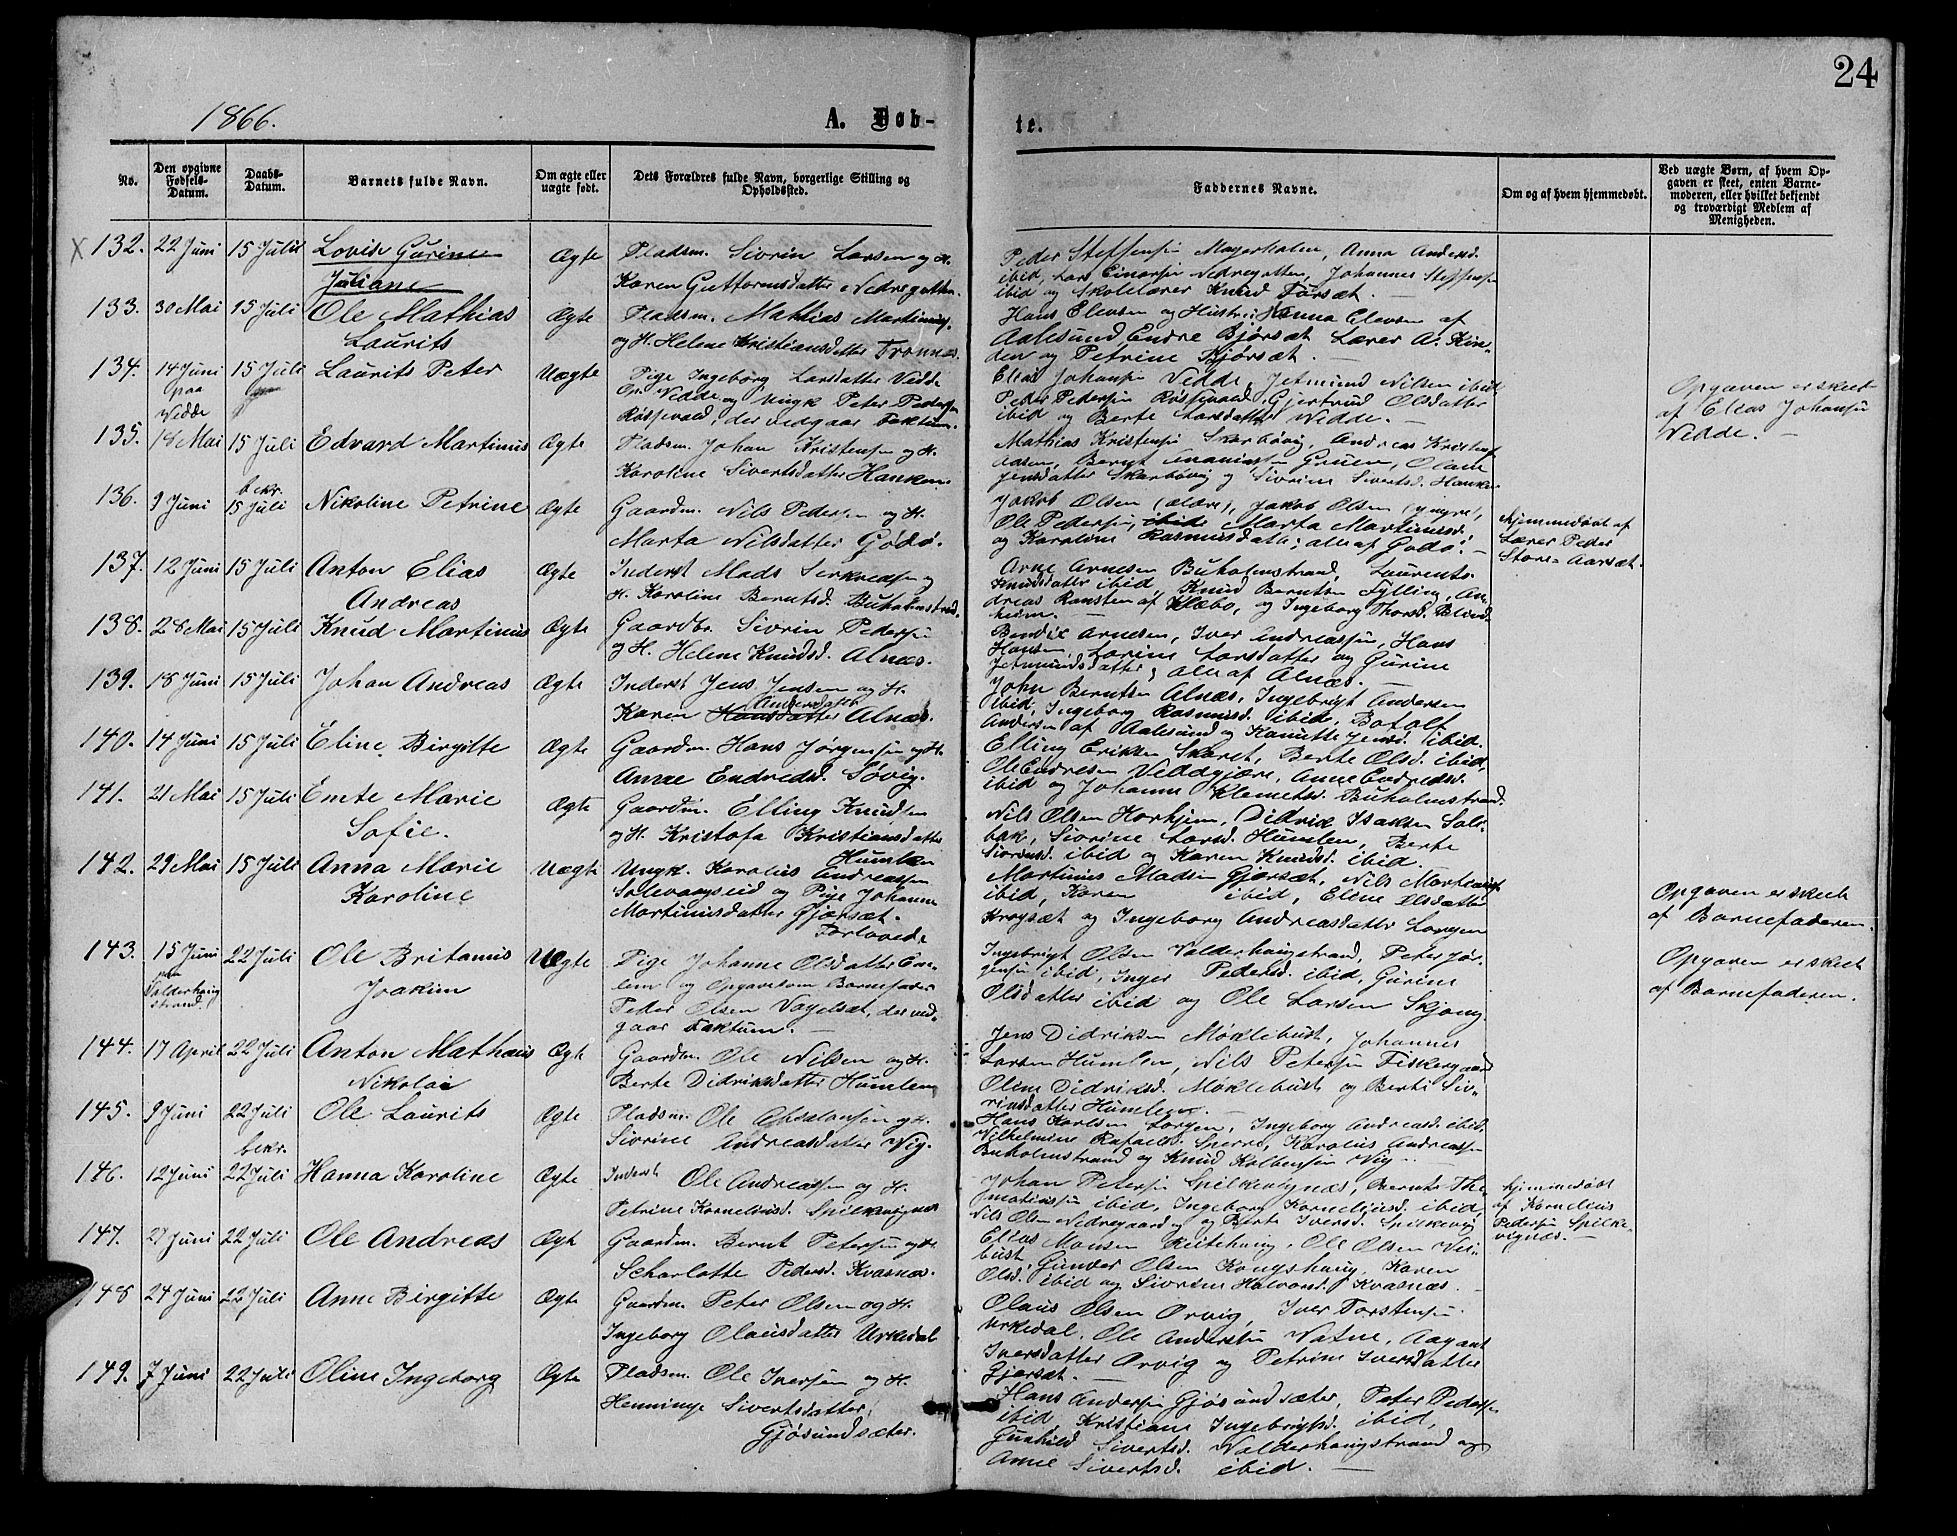 24
1866.
A. Døb-
te.
No.
Den opgivne Fødsels-Datum.
Daabs-Datum.
Barnets fulde Navn.
Om ægte eller uægte født.
Dets Forældres fulde Navn, borgerlige Stilling og Opholdssted.
Faddernes Navne.
Om og af hvem hjemmedøbt.
Ved uægte Børn, af hvem Opgaven er skeet, enten Barnemoderen, eller hvilket bekjendt og troværdigt Medlem af Menigheden.
X 132. 22 Juni 15 Juli Lovise Gurine Juliane Ægte
Pladsm. Sivrin Larsen og H.
Karen Guttormsdatter Nedregotten.
Peder Steffensen Magerholm, Anna Andersd.
ibid, Lars Einarsen Nedregotten, Johannes Steffensen
ibid og Skolelærer Knud Førsæt. —
133. 30 Mai 15 Juli Ole Mathias Laurits Ægte
Pladsm. Mathias Martinus.
og H. Helene Kristiansdatter Tronnæs.
Hans Elevsen og Hustru Anna Elevsen af
Aalesund, Endre Bjørsæt Lærer A. Kin-
den og Petrine Bjørsæt. —
134. 14 Juni paa Vedde 15 Juli Laurits Peter Uægte
Pige Ingeborg Larsdatter Vedde
Op. Vedde og Ungk Peter Pedersen
Rossevold, der vedgaar Faktum.
Elias Johansen Vedde, Jetmund Nilsen ibid
Peder Pedersen Rossevold, Gjertrud Olsdatter
ibid og Berte Larsdatter Vedde. —
Opgaven er skeet
af Elias Johansen
Vedde. —
135. 18 Mai 15 Juli Edvard Martinus Ægte
Pladsm. Johan Kristensen og H.
Karoline Sivertsdatter Hanken.
Mathias Kristensen Skarbøvig, Andreas Kristens
Aasen, Bernt Ananiassen Gruen, Olave
Jensdatter Skarbøvig og Sivrine Sivertsd. Hanken
136. 9 Juni bekr. 15 Juli Nikoline Petrine Ægte
Gaardm. Nils Pedersen og H.
Marta Nilsdatter Godø.
Jakob Olsen (ældre), Jakob Olsen (yngre),
Ole Pedersen, ibid Marta Martinusd.
og Karoline Rasmusdatter, alle af Godø. —
Hjemmedøbt af
Lærer Peder
Store Aarsæt.
137. 12 Juni 15 Juli Anton Elias Andreas Ægte
Inderst Mads Sirkredsen og
H. Karoline Berntsd. Buholmstrand.
Arne Arnesen Buholmstrand, Laurents
Knudsdatter ibid, Knud Berntsen Fylling, An-
dreas Ransten af Klæbo, og Ingeborg Thorsd. Blind-
heim. —
138. 28 Mai 15 Juli Knud Martinus Ægte
Gaardbr. Sivrin Pedersen
og H. Helene Knudsd. Alnæs.
Bendix Arnesen, Iver Andreassen, Hans
Hansen, Lorine Larsdatter og Gurine
Jetmundsdatter, alle af Alnæs. —
139. 18 Juni 15 Juli Johan Andreas Ægte
Inderst Jens Jensen og H.
Karen Hansdatter Andersdatter Alnæs.
John Berntsen Alnæs, Ingebrigt Andersen
ibid, Ingeborg Rasmusd. ibid, Botolf
Andersen af Aalesund og Kanutte Jensd. ibid.
140. 14 Juni 15 Juli Eline Birgitte Ægte
Gaardm. Hans Jørgensen og H.
Anne Endredsd. Søvig.
Elling Eriksen Skaret, Berte Olsd. ibid,
Ole Endresen Veddgjære, Anne Endredsd.
ibid og Johanne Klemetsd. Buholmstrand.
141. 21 Mai 15 Juli Emte Marie Sofie. Ægte
Gaardm. Elling Knudsen
og H. Kristofa Kristiansdatter
Humlen
Nils Olsen Horhjem, Didrik Isaksen Sole-
bak, Sivrine Larsd. Humlen, Berte
Sivrinsd. ibid og Karen Knudsd. ibid. —
142. 29 Mai 15 Juli Anna Marie Karoline Uægte
Ungk. Karolus Andreassen
Solevaagseid og Pige Johanne
Martinusdatter Gjørsæt.
Forlovede
Martinus Madsen Gjørsæt, Nils Martinusen
ibid, Karen ibid, Elene Elsdatter
Krogsæt og Ingeborg Andreasdatter Longva
Opgaven er skeet
af Barnefaderen.
143. 15 Juni paa Valderhaug strand. 22 Juli Ole Britanus Joakim Uægte
Pige Johanne Olsdatter Em-
lem og Opgaves som Barnefader
Peder Olsen Vagelsæt, der ved-
gaar Faktum. —
Ingebrigt Olsen Valderhaugstrand, Peter Jør-
gensen ibid, Inger Pedersd. ibid, Gurine
Olsdatter ibid og Ole Larsen Skjong.
Opgaven er skeet
af Barnefaderen.
144. 17 April 22 Juli Anton Mathæus Nikolai Ægte
Gaardm. Ole Nilsen og H.
Berte Didriksdatter Humlen
Jens Didriksen Møklebust, Johannes
Larsen Humlen, Nils Petersen Fiskergaard
Oline Didriksd. Møklebust og Berte Siv-
rinsdatter Humlen. —
145. 9 Juni 22 Juli Ole Laurits Ægte
Pladsm. Ole Absalonsen og H.
Sivrine Andreasdatter Vig.
Hans Karlsen Lorgen, Ingeborg Andreasd. ibid.
Vilhelmine Rafaelsd. Sperre, Karolus Andreassen
Buholmstrand og Knud Kolbensen Vig. —
146. 12 Juni bekr. 22 Juli Hanna Karoline Ægte
Inderst Ole Andreassen og H.
Petrine Korneliusd. Spilkevignæs
Johan Petersen Spilkevignæs, Bernt The-
matiassen ibid, Ingeborg Korneliusd. ibid,
Nils Olsen Nedregaard og Berte Iversd. Spilkevig
Hjemmedøbt
af Kornelius
Pedersen Spilke-
vignæs. —
147. 27 Juni 22 Juli Ole Andreas Ægte
Gaardm. Bernt Petersen og H.
Scharlotte Pedersd. Kvasnæs.
Elias Monsen Reitehaug, Ole Olsen Vei-
bust, Gunder Olsen Kongshaug, Karen
Olsd. ibid og Sivrine Halvorsd. Kvasnæs.
148 24 Juni 22 Juli Anne Birgitte Ægte
Gaardm. Peter Olsen og H.
Ingeborg Olausdatter Urkedal
Olaus Olsen Ørvig, Iver Torstensen
Urkedal, Ole Andersen Vatne, Aagant
Iversdatter Ørvig og Petrine Iversdatter
Gjørsæt. —
149. 7 Juni 22 Juli Oline Ingeborg Ægte
Pladsm. Ole Iversen og H.
Henninge Sivertsdatter,
Gjøsundsæter.
Hans Andersen Gjøsundsæter, Peter Pedersen
ibid, Kristiane Ingebrigtsd. ibid,
Gunhild Sivertsd. Valderhaugstrand og
Anne Sivertsd. ibid. —